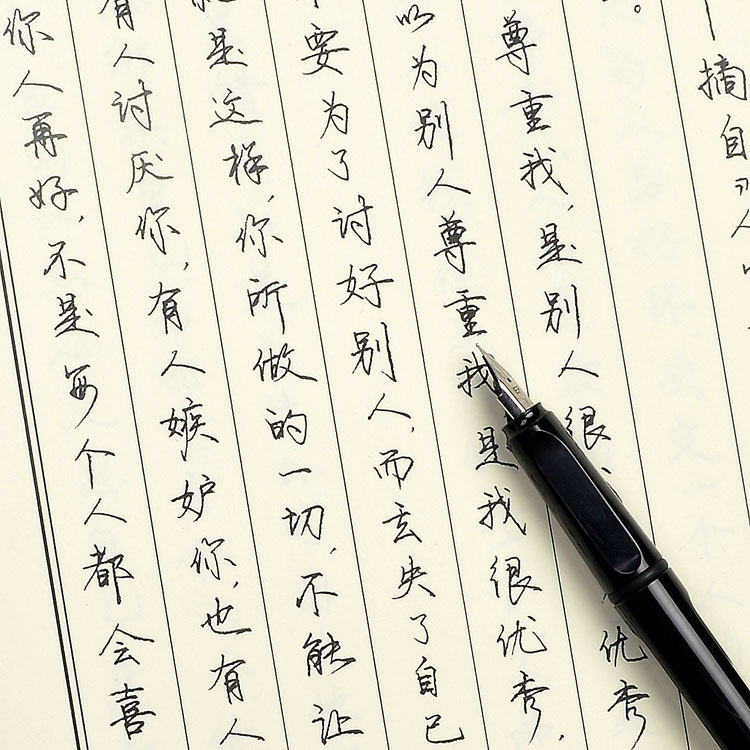 你人再好,不是每个人都会喜
有人讨厌你,有人嫉妒你,也有人
是这样,你所做的一切,不能让
要为了讨好别人,而丢失了自己
以为别人尊重我是我很优秀,
尊重我,是别人很优秀
。
摘自